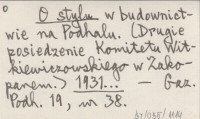 O stylu w budownict-
wie na Podhalu. (Drugie
posiedzenie Komitetu Wit-
kiewiczowskiego w Zako-
panem.) 1931... — Gaz.
Podh. 19, nr 38.